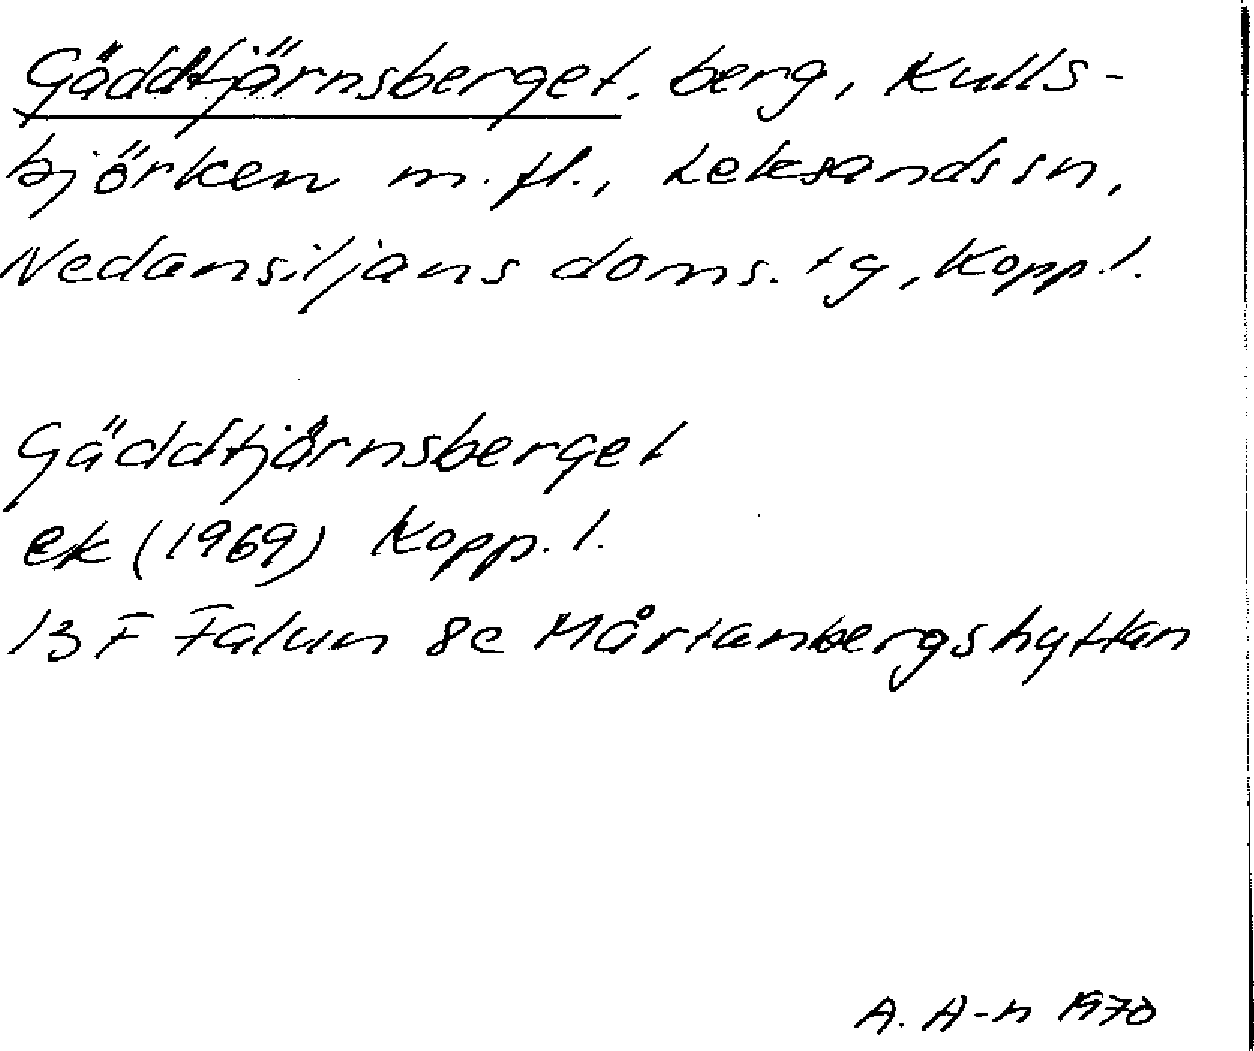 Gäddtjärnsberget, berg, Kulls-
björken m.fl., Leksands sn,
Nedansiljans doms. tg, Kopp.l.
Gäddtjärnsberget
ek (1969) Kopp.l.
13 F Falun 8c Mårtanbergshyttan
A. A-n 1970